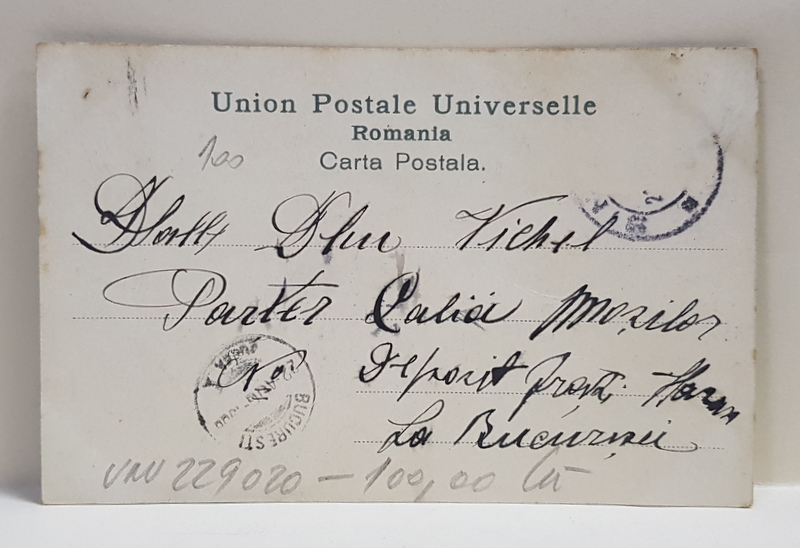 Union Postale Universelle
Romania
Carta Postala.
100
Dlui Vichel
Parter Calia Mozilor
No Deposit
La Bucuresci
BUCURESTI
229020 — 100,00